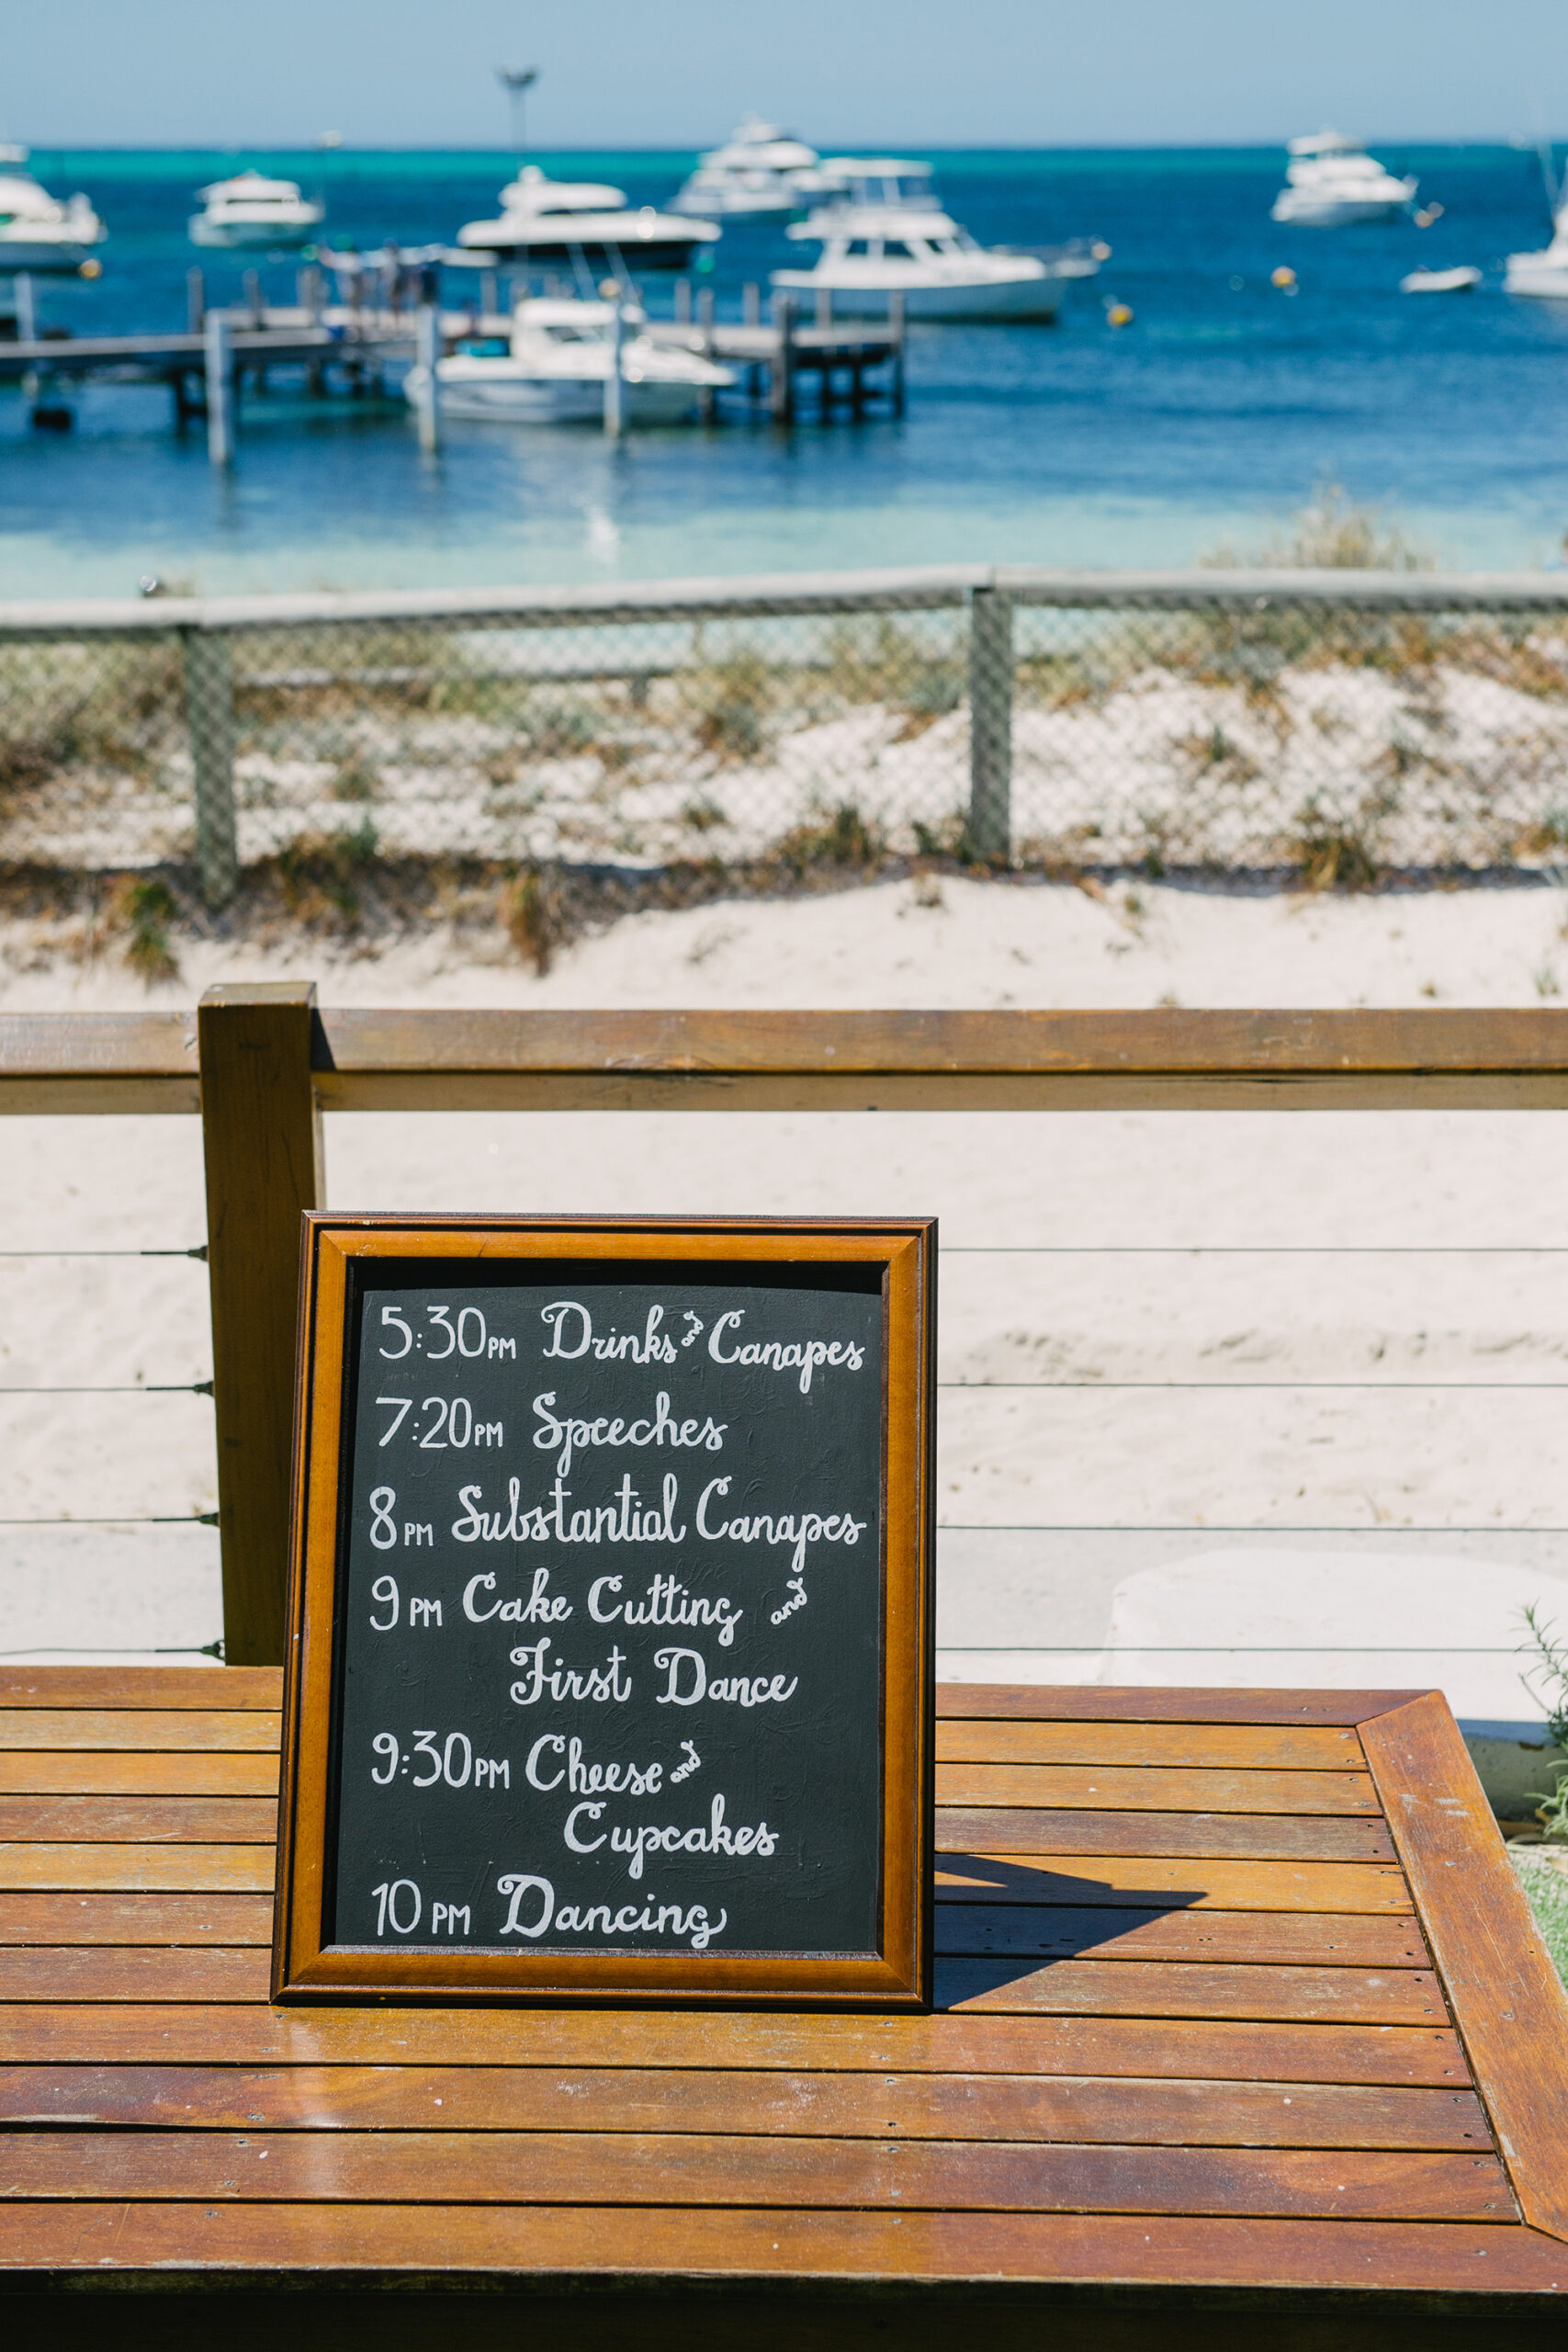 5:30PM Drinks and Canapes
7:20PM Speeches
8PM Substantial Canapes
9PM Cake Cutting and
First Dance
9:30PM Cheese and
Cupcakes
10PM Dancing